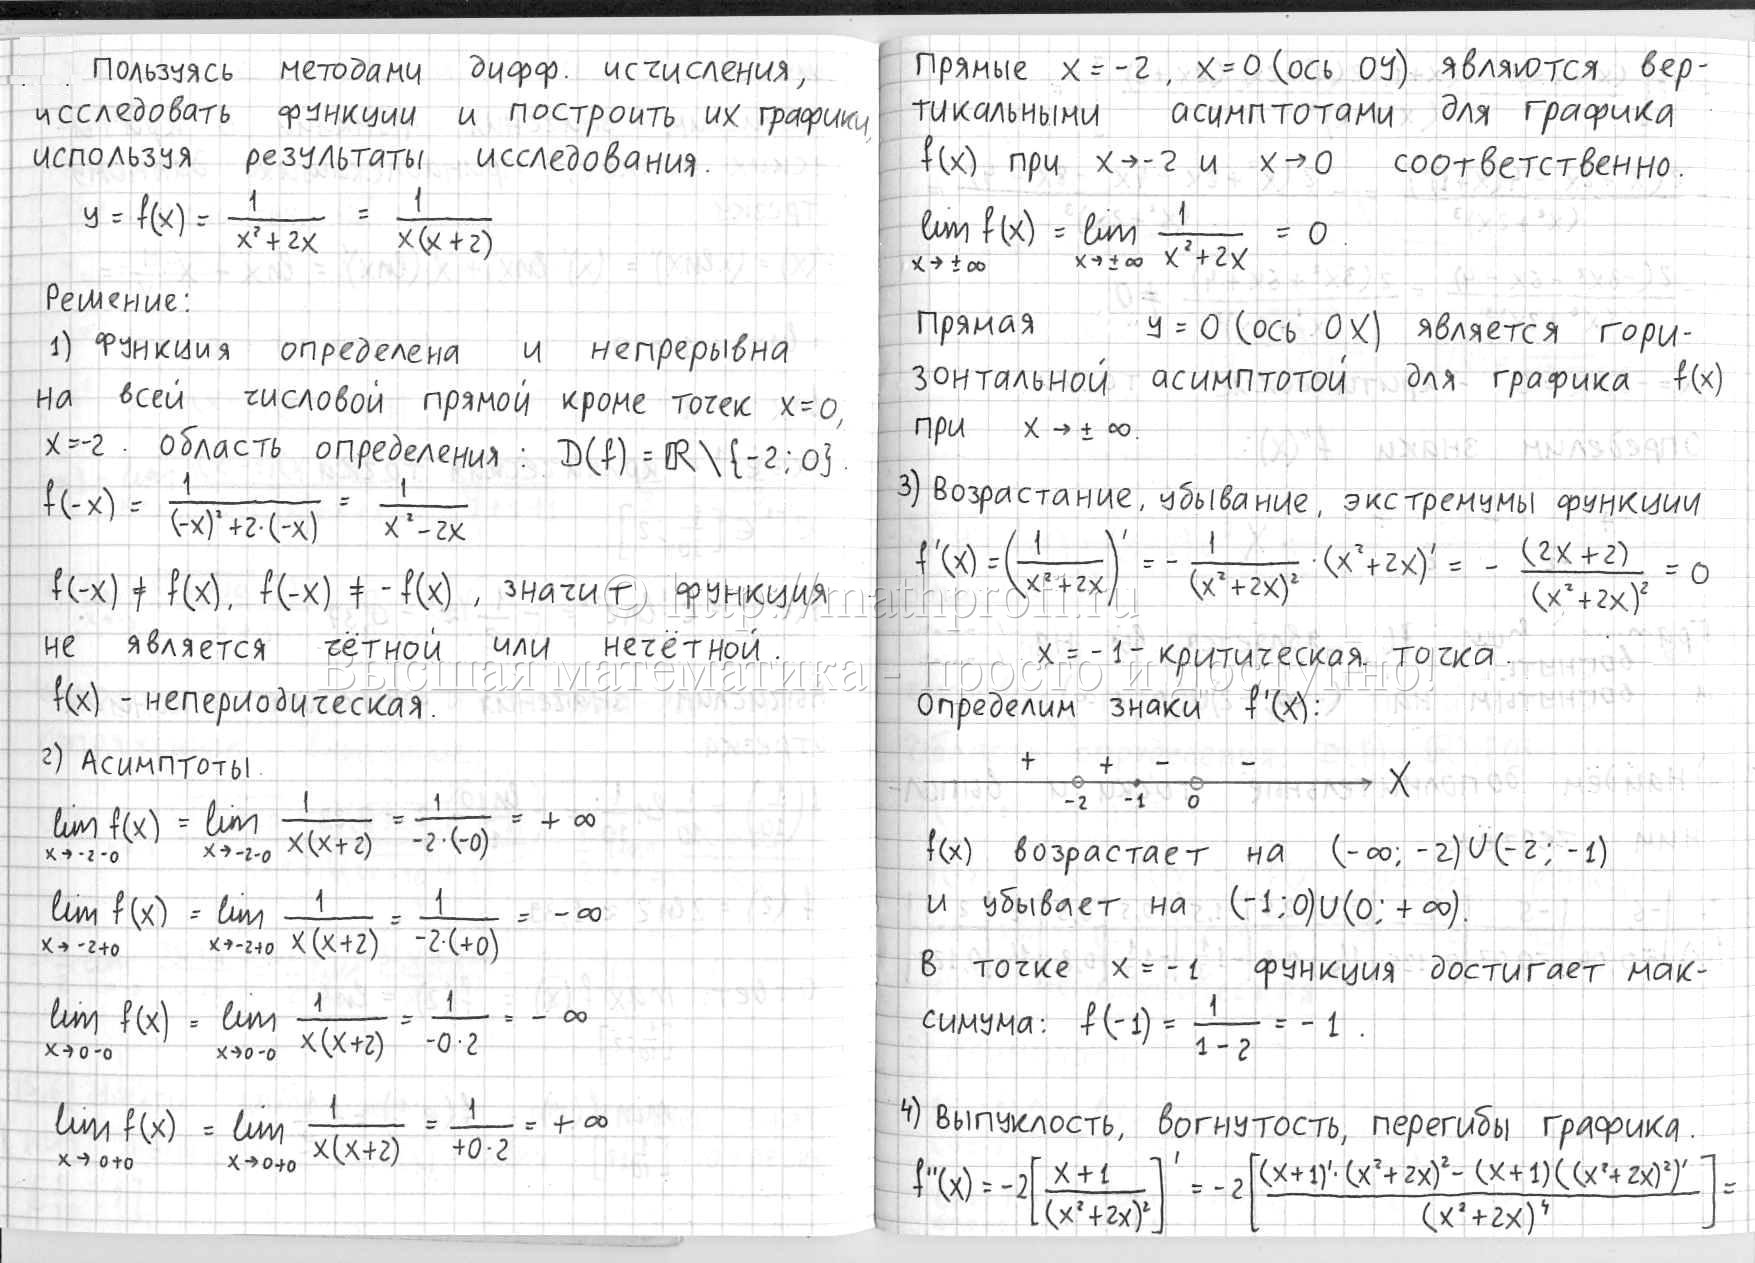 Пользуясь методами дифф. исчисления,
исследовать функции и построить их графики,
используя результаты исследования.
y = f(x) = 1/(x²+2x) = 1/(x(x+2))
Решение:
1) Функция определена и непрерывна
на всей числовой прямой кроме точек x=0,
x=-2. область определения: D(f) = ℝ\{-2; 0}.
f(-x) = 1/((-x)²+2·(-x)) = 1/(x²-2x)
f(-x) ≠ f(x), f(-x) ≠ -f(x), значит функция
не является чётной или нечётной.
f(x) - непериодическая.
2) Асимптоты.
lim f(x) = lim 1/(x(x+2)) = 1/(-2·(-0)) = +∞
x→-2-0 x→-2-0
lim f(x) = lim 1/(x(x+2)) = 1/(-2·(+0)) = -∞
x→-2+0 x→-2+0
lim f(x) = lim 1/(x(x+2)) = 1/(-0·2) = -∞
x→0-0 x→0-0
lim f(x) = lim 1/(x(x+2)) = 1/(+0·2) = +∞
x→0+0 x→0+0
Прямые x=-2, x=0 (ось OY) являются вер-
тикальными асимптотами для графика
f(x) при x→-2 и x→0 соответственно.
lim f(x) = lim 1/(x²+2x) = 0.
x→±∞ x→±∞
Прямая y=0 (ось OX) является гори-
зонтальной асимптотой для графика f(x)
при x→±∞.
3) Возрастание, убывание, экстремумы функции
f'(x) = (1/(x²+2x))' = - 1/(x²+2x)² · (x²+2x)' = - (2x+2)/(x²+2x)² = 0
x = -1 - критическая точка.
Определим знаки f'(x):
+ + - -
-2 -1 0 X
f(x) возрастает на (-∞; -2)∪(-2; -1)
и убывает на (-1; 0)∪(0; +∞).
В точке x=-1 функция достигает мак-
симума: f(-1) = 1/(1-2) = -1.
4) Выпуклость, вогнутость, перегибы графика.
f''(x) = -2[(x+1)/(x²+2x)²]' = -2[((x+1)'·(x²+2x)²-(x+1)((x²+2x)²)')/(x²+2x)⁴] =
© http://mathprofi.ru
Высшая математика - просто и доступно!